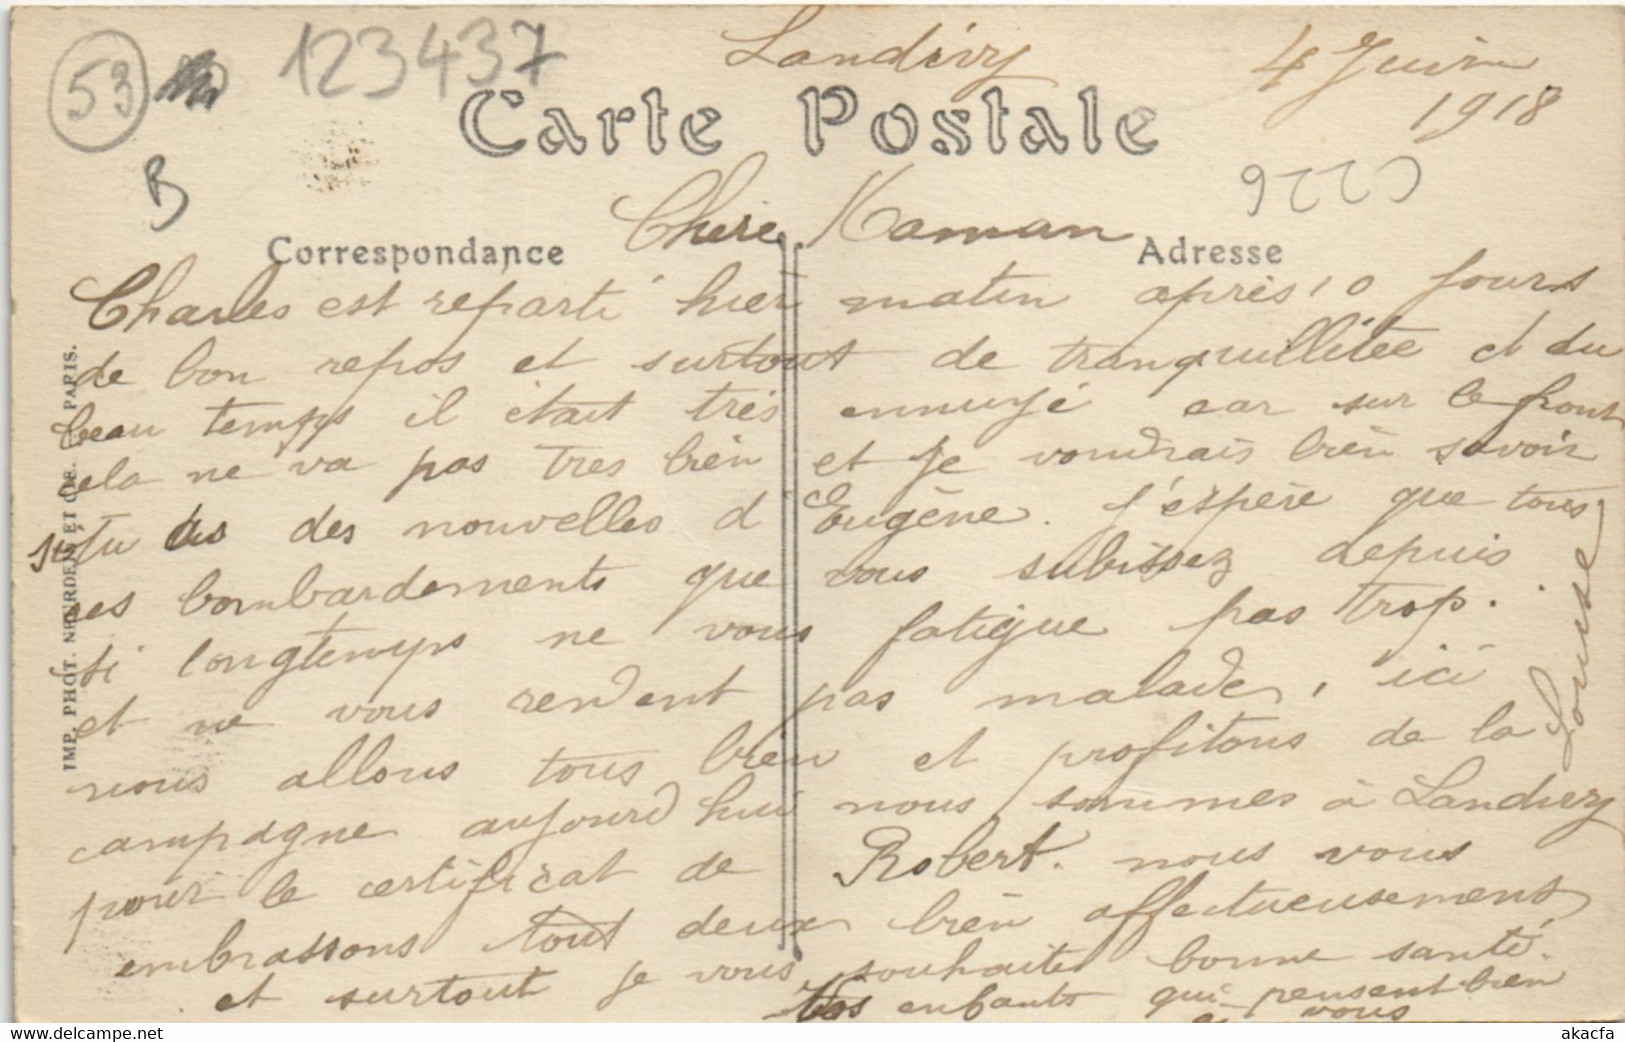 53
123437
Landivy
4 Juin
1918
Carte Postale
B
C226
Chère Maman
Correspondance
Adresse
Charles est reparti hier matin après 10 jours
de bon repos et surtout de tranquillitée et du
beau temps il était très ennuyé car sur le front
cela ne va pas très bien et je voudrais bien savoir
si tu as des nouvelles d'Eugène. J'espère que tous
ces bombardements que vous subissez depuis
si longtemps ne vous fatigue pas trop.
et ne vous rendent pas malade, ici
nous allons tous bien et profitons de la
campagne aujourd'hui nous sommes à Landivy
pour le certificat de Robert. nous vous
embrassons tout deux bien affectueusement
et surtout je vous souhaite bonne santé.
Vos enfants qui pensent bien
à vous
Louise
IMP. PHOT. NEURDEIN ET CIE. PARIS.
akacfa
delcampe.net